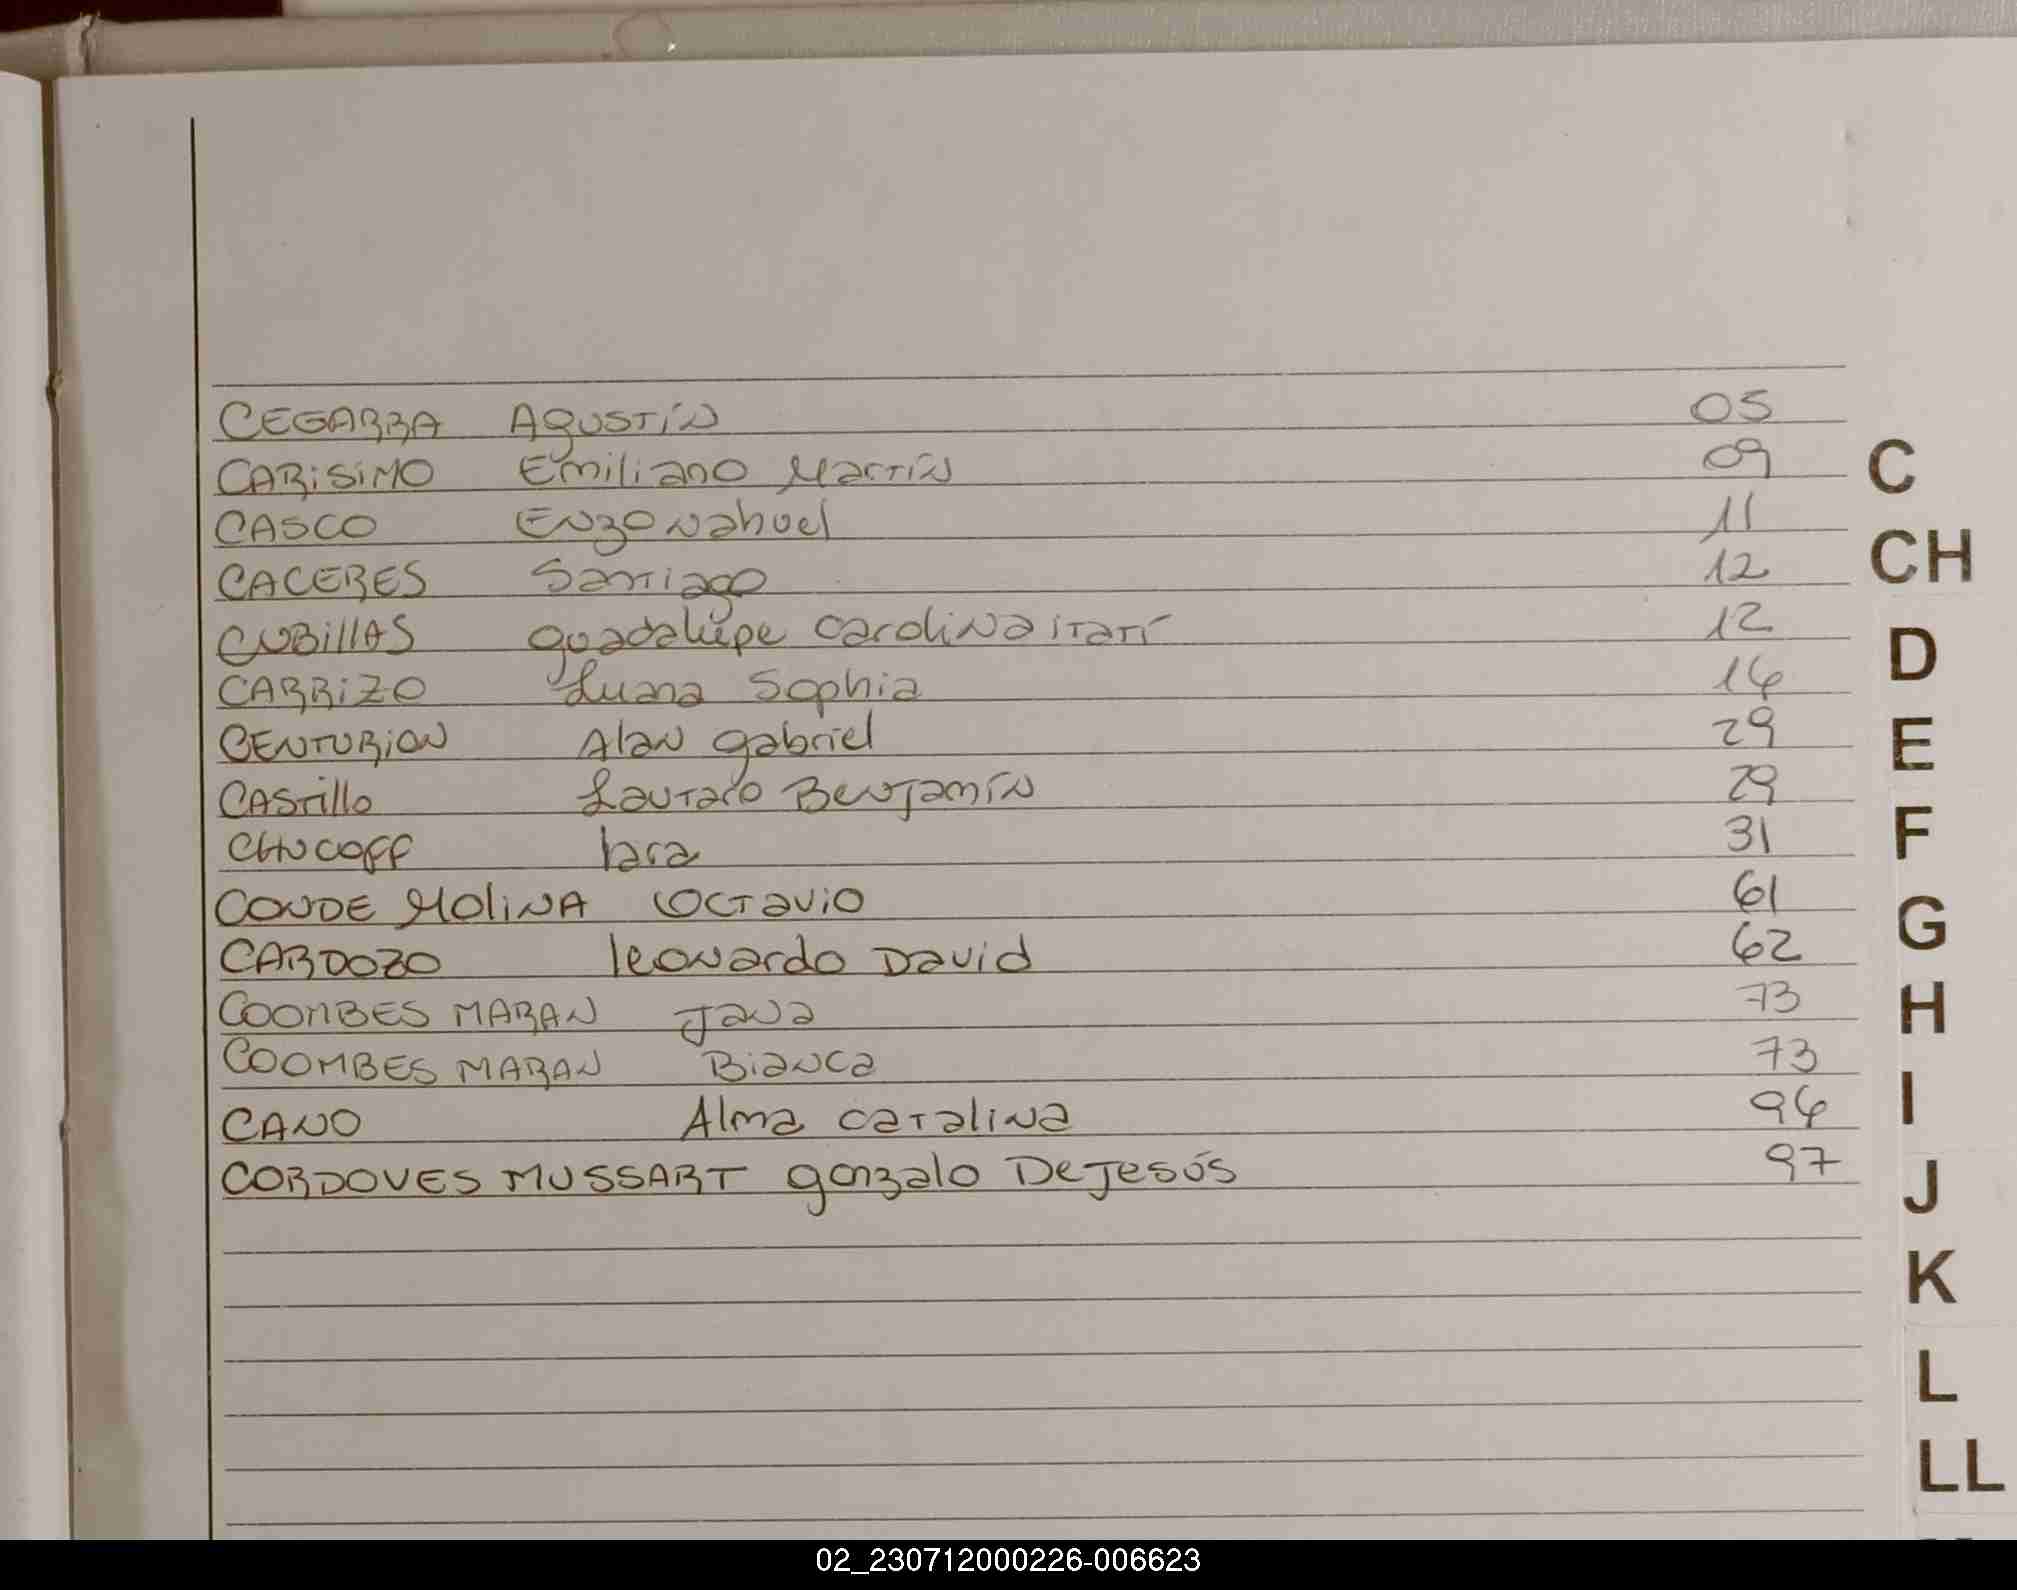 CEGARRA AGUSTÍN 05
CARISIMO Emiliano Martín 09
CASCO Enzo Nahuel 11
CACERES Santiago 12
CUBILLAS Guadalupe Carolina Itatí 12
CARRIZO Luana Sophia 14
CENTURION Alan Gabriel 29
CASTILLO Lautaro Benjamín 29
CHUCOFF Iara 31
CONDE MOLINA Octavio 61
CARDOZO Leonardo David 62
COOMBES MARAN Jana 73
COOMBES MARAN Bianca 73
CANO Alma Catalina 94
CORDOVES MUSSART Gonzalo De Jesús 97
C
CH
D
E
F
G
H
I
J
K
L
LL
02_230712000226-006623